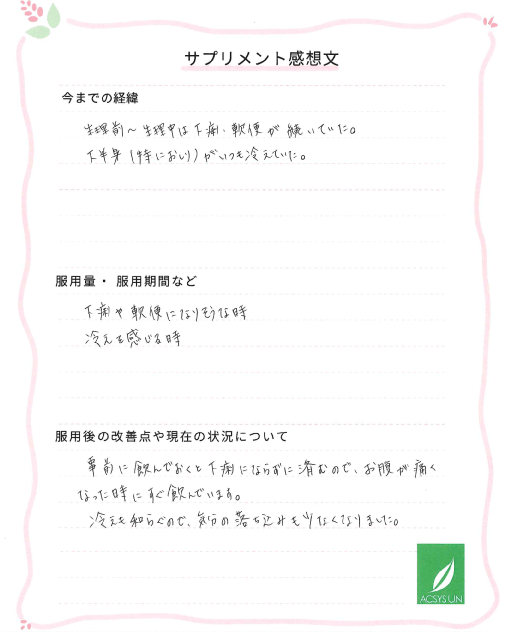 サプリメント感想文
今までの経緯
生理前～生理中は下痢、軟便が続いていた。
下半身(特におしり)がいつも冷えていた。
服用量・ 服用期間など
下痢や軟便になりそうな時
冷えを感じる時
服用後の改善点や現在の状況について
事前に飲んでおくと下痢にならずに済むので、お腹が痛く
なった時にすぐ飲んでいます。
冷えも和らぐので、気分の落ち込みも少なくなりました。
ACSYS UN